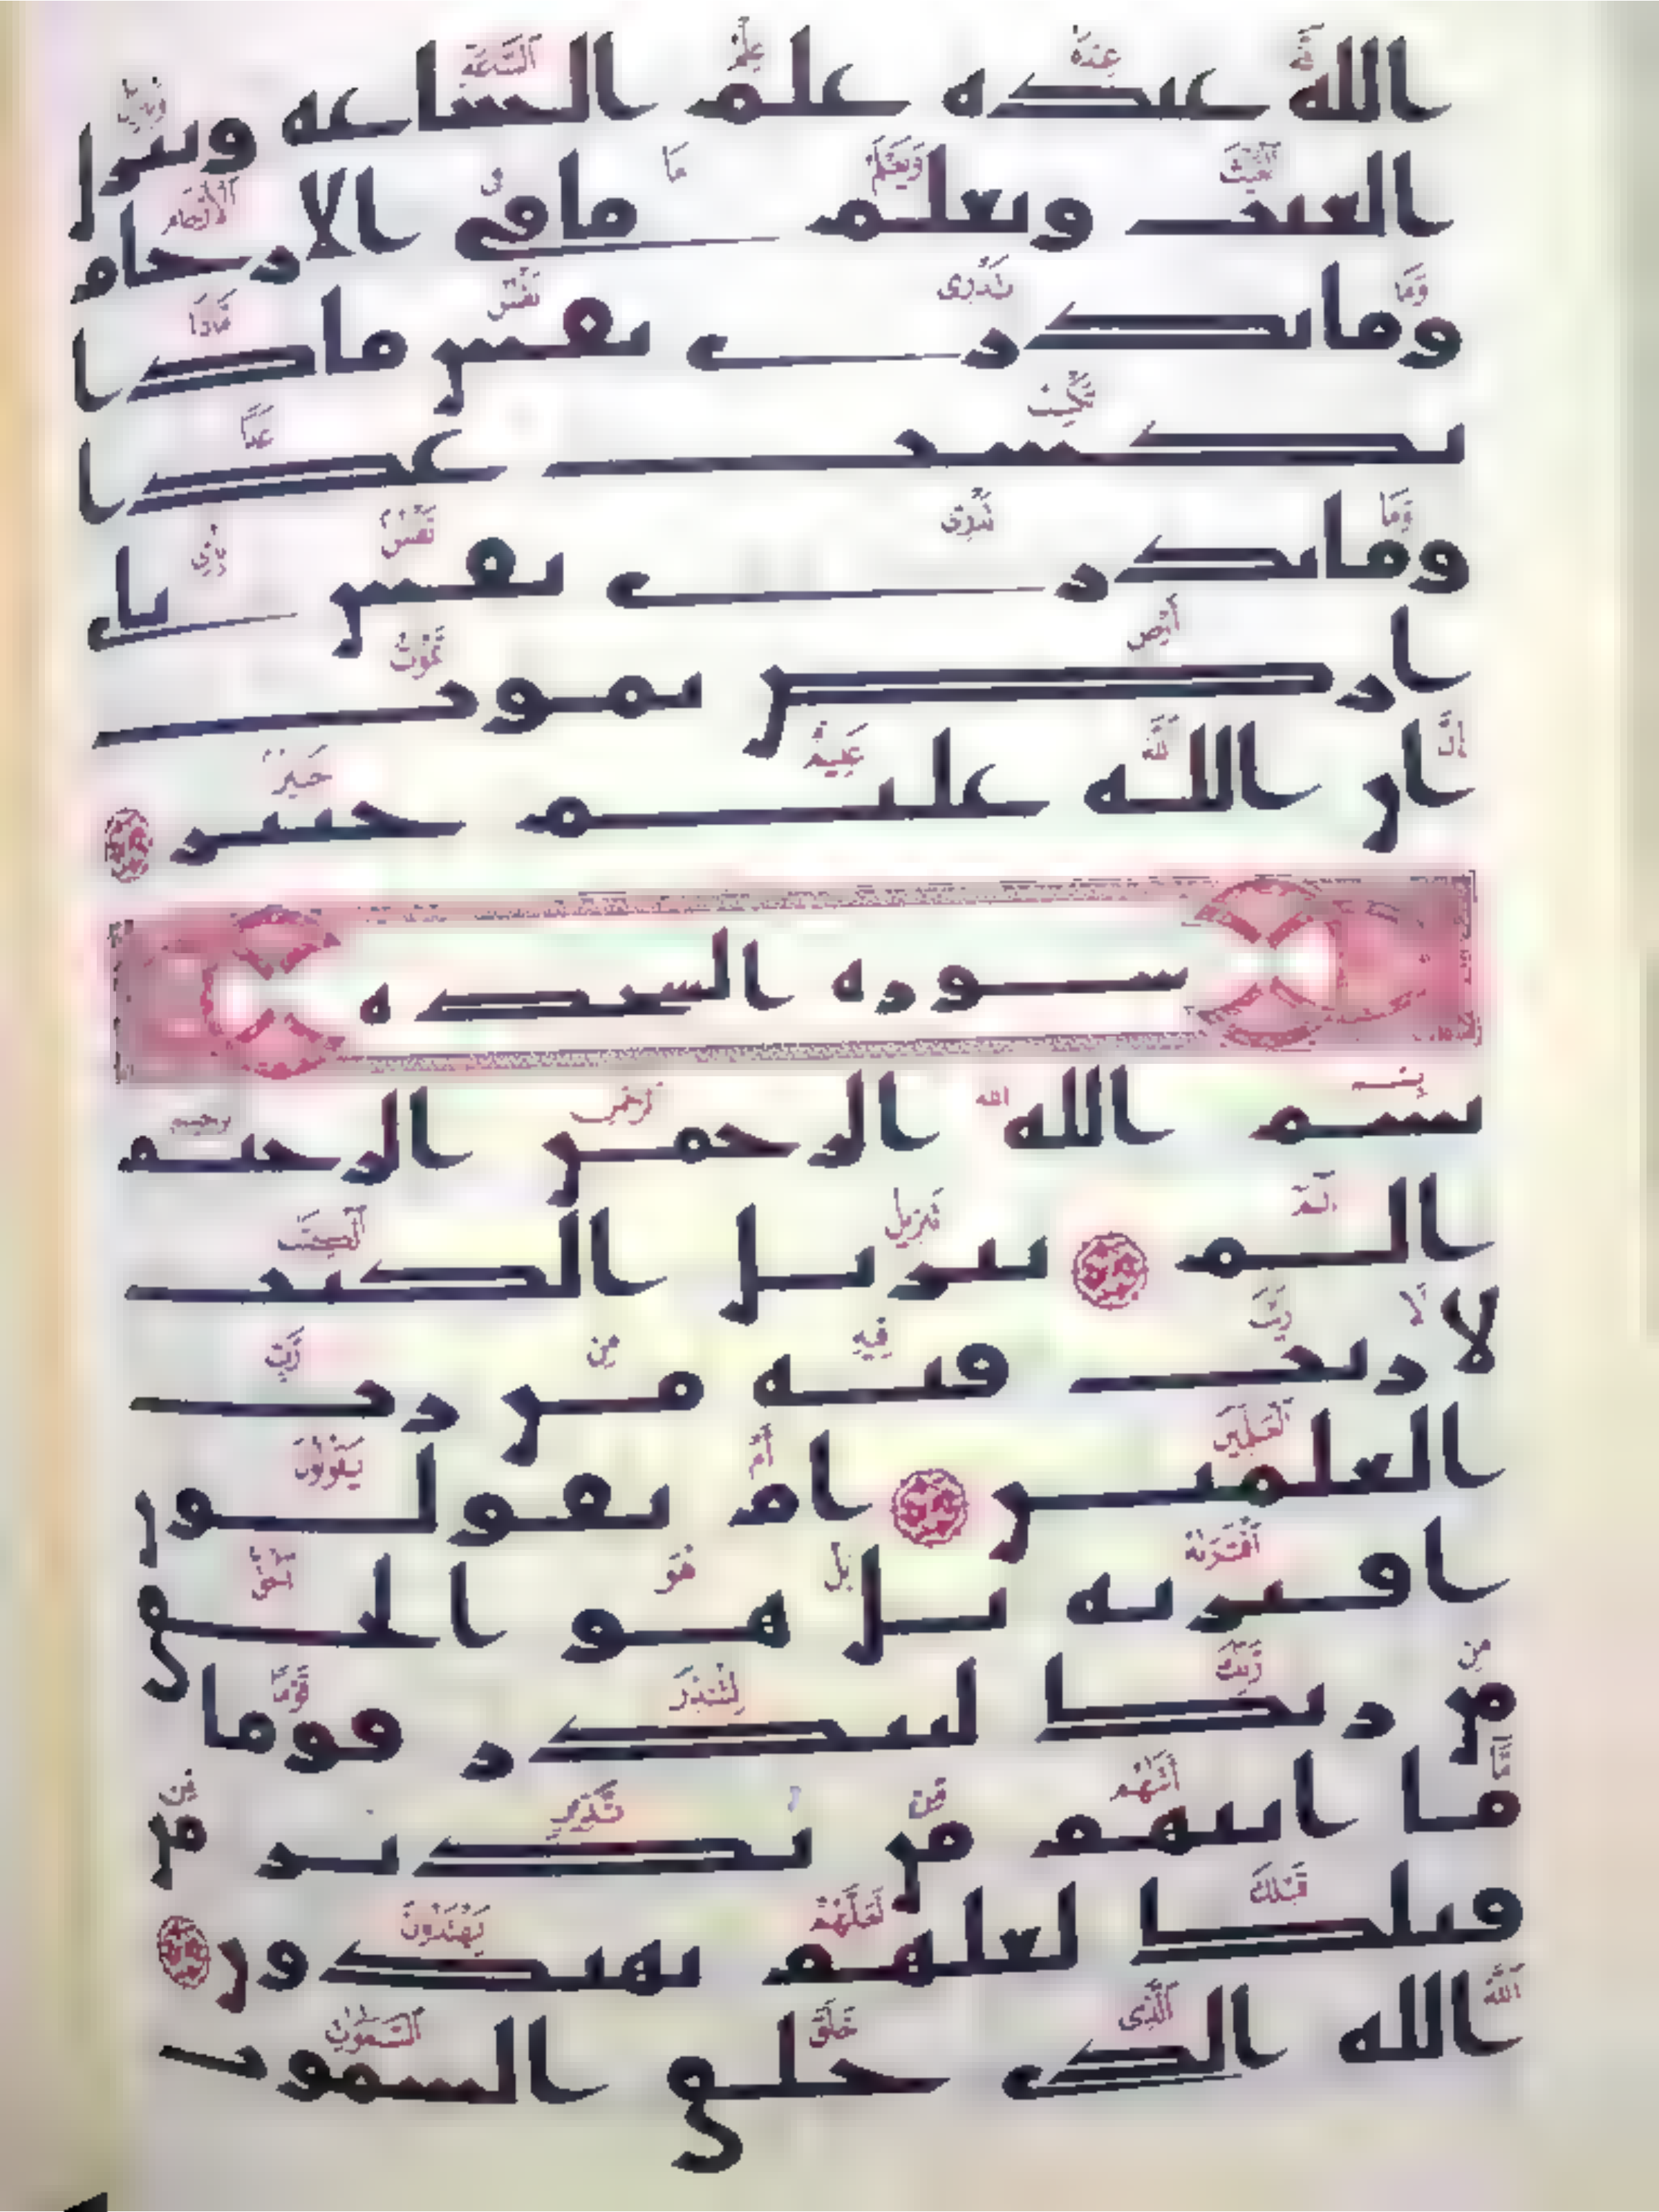 الله عنده علم الساعه وينزل
الغيث ويعلم ما في الارحام
وما تدري نفس ماذا
تكسب غدا
وما تدري نفس باي
ارض تموت
ان الله عليم خبير
سوره السجده
بسم الله الرحمن الرحيم
الم تنزيل الكتب
لا ريب فيه من رب
العلمين ام يقولون
افتريه بل هو الحق
من ربك لتنذر قوما
ما اتيهم من نذير من
قبلك لعلهم يهتدون
الله الذي خلق السموت